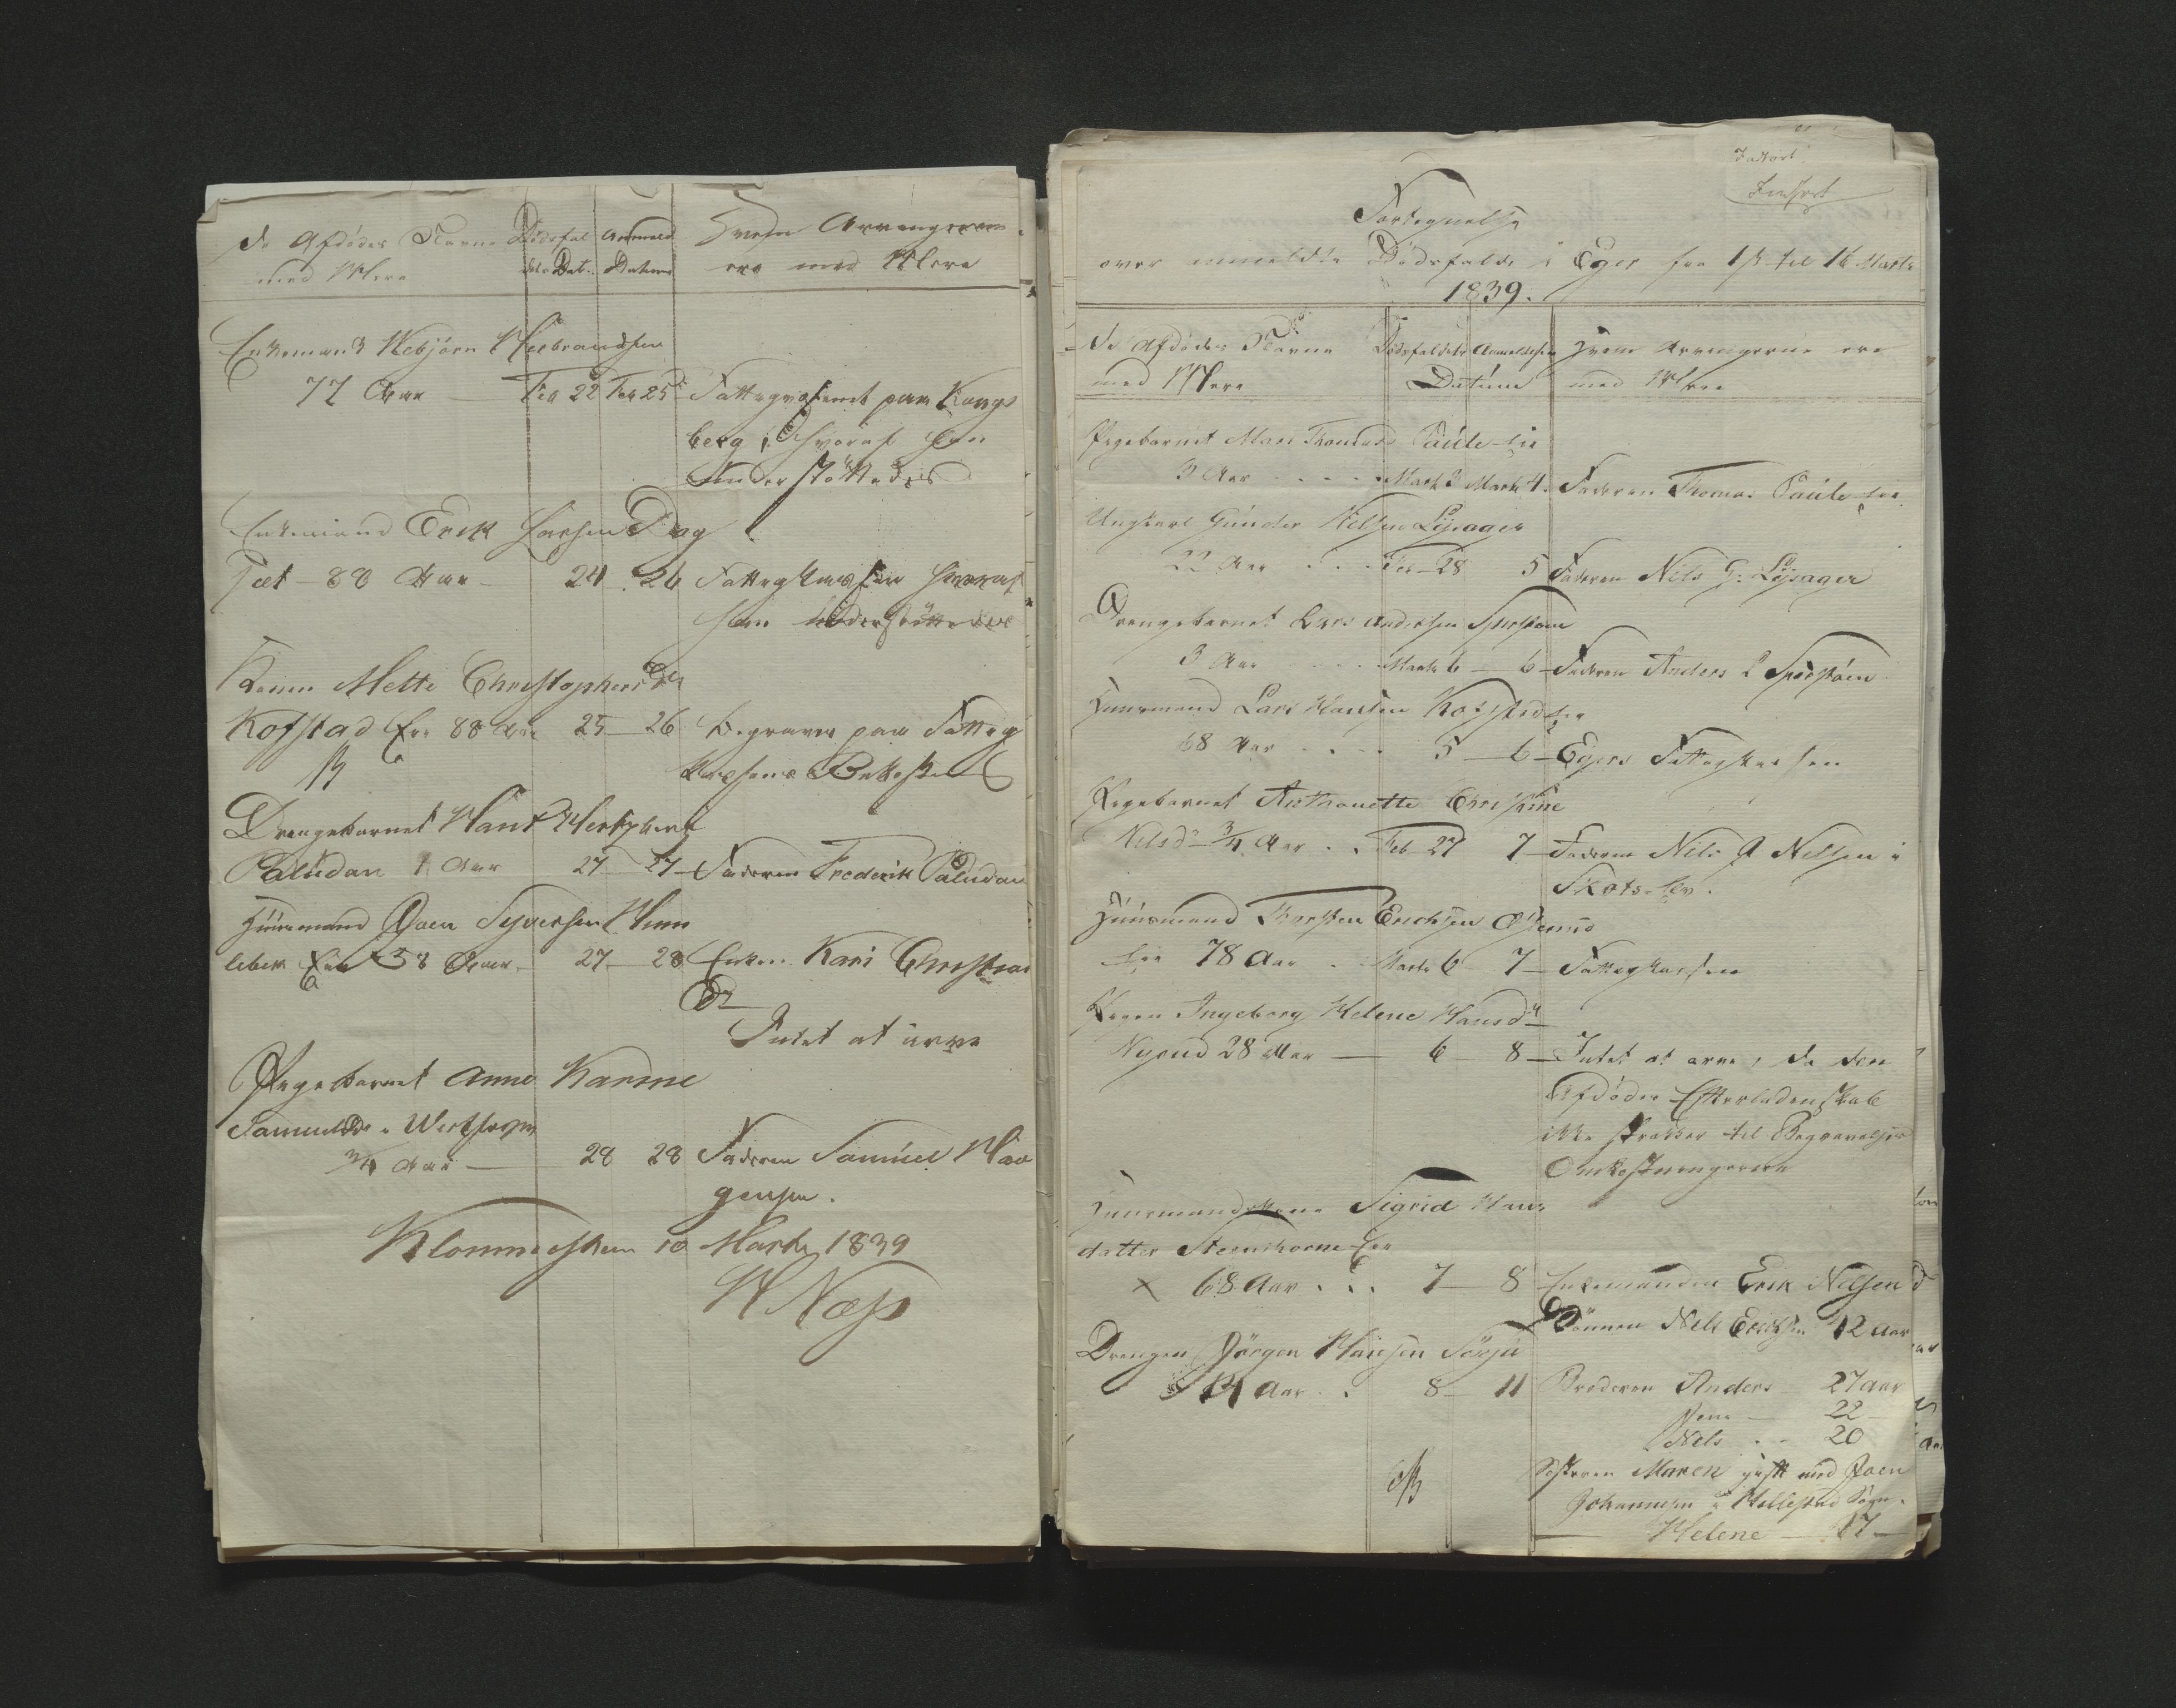 de Afdödes Navne Dödsfal Anmeld Hvem Arvingerne
med Mere dets Dat. Datum ere med Mere
Enkemand Kebjörn Helbrandsen
77 Aar Feb 22 Feb 25 Fattigvæsenet paa Kongs
berg, hvoraf han
understöttedes
Enkemand Erik Larsen Dag
88 Aar 24 26 Fattigkassen hvoraf
han understöttedes
Konen Mette Christophersdr
Kofstad Eie 88 Aar 25 26 begraves paa Fattig
kassens Bekostning
Drengebarnet Hans
Paludan 1 Aar 27 27 Faderen Frederik Paludan
Huusmand Joen Syversen
Eie 58 Aar 27 28 Enken Kari Christians
Dr
Intet at arve
Pigebarnet Anne Karine
Samuelsdr
3/4 Aar 28 28 Faderen Samuel Haa
gensen.
10 Marts 1839
H Næss
Indført
Fortegnelse
over anmeldte Dödsfalde i Eger fra 1ste til 16 Marts
1839.
de Afdödes Navne Dödsfaldets Anmeldelsen Hvem Arvingerne ere
med Mere Datum med Mere
Pigebarnet Mari Thomasdr Eie
3 Aar Marts 3 Marts 4 Faderen Thomas Eie
Ungkarl Gunder Nilsen Lysager
22 Aar Feb 28 5 Faderen Nils G: Lysager
Drengebarnet Lars Andersen
3 Aar Marts 6 6 Faderen Anders L
Huusmand Lars Hansen Kofstad Eie
68 Aar 5 6 Egers Fattigkassen
Pigebarnet Anthonette Christine
Nilsdr 3/4 Aar Feb 27 7 Faderen Nils J Nilsen i
Skots-elv.
Huusmand Thorsten Erichsen
Eie 78 Aar Marts 6 7 Fattigkassen
Pigen Ingeborg Helene Hansdr
28 Aar 6 8 Intet at arve, da den
Afdödes Efterladenskab
ikke strækker til Begravelses
Omkostningerne
Huusmandskone Sigrid Hans
datter Steenshorne Eie
x 68 Aar 7 8 Enkemanden Erik Nilsen
Sönnen Nils Erichsen 12 Aar
Drengen Jörgen Hansen
14 Aar 8 11 Broderen Anders 27 Aar
Jens 22
Nils 20
Sösteren Maren gift med Joen
Johannesen i Sogn.
Helene 17